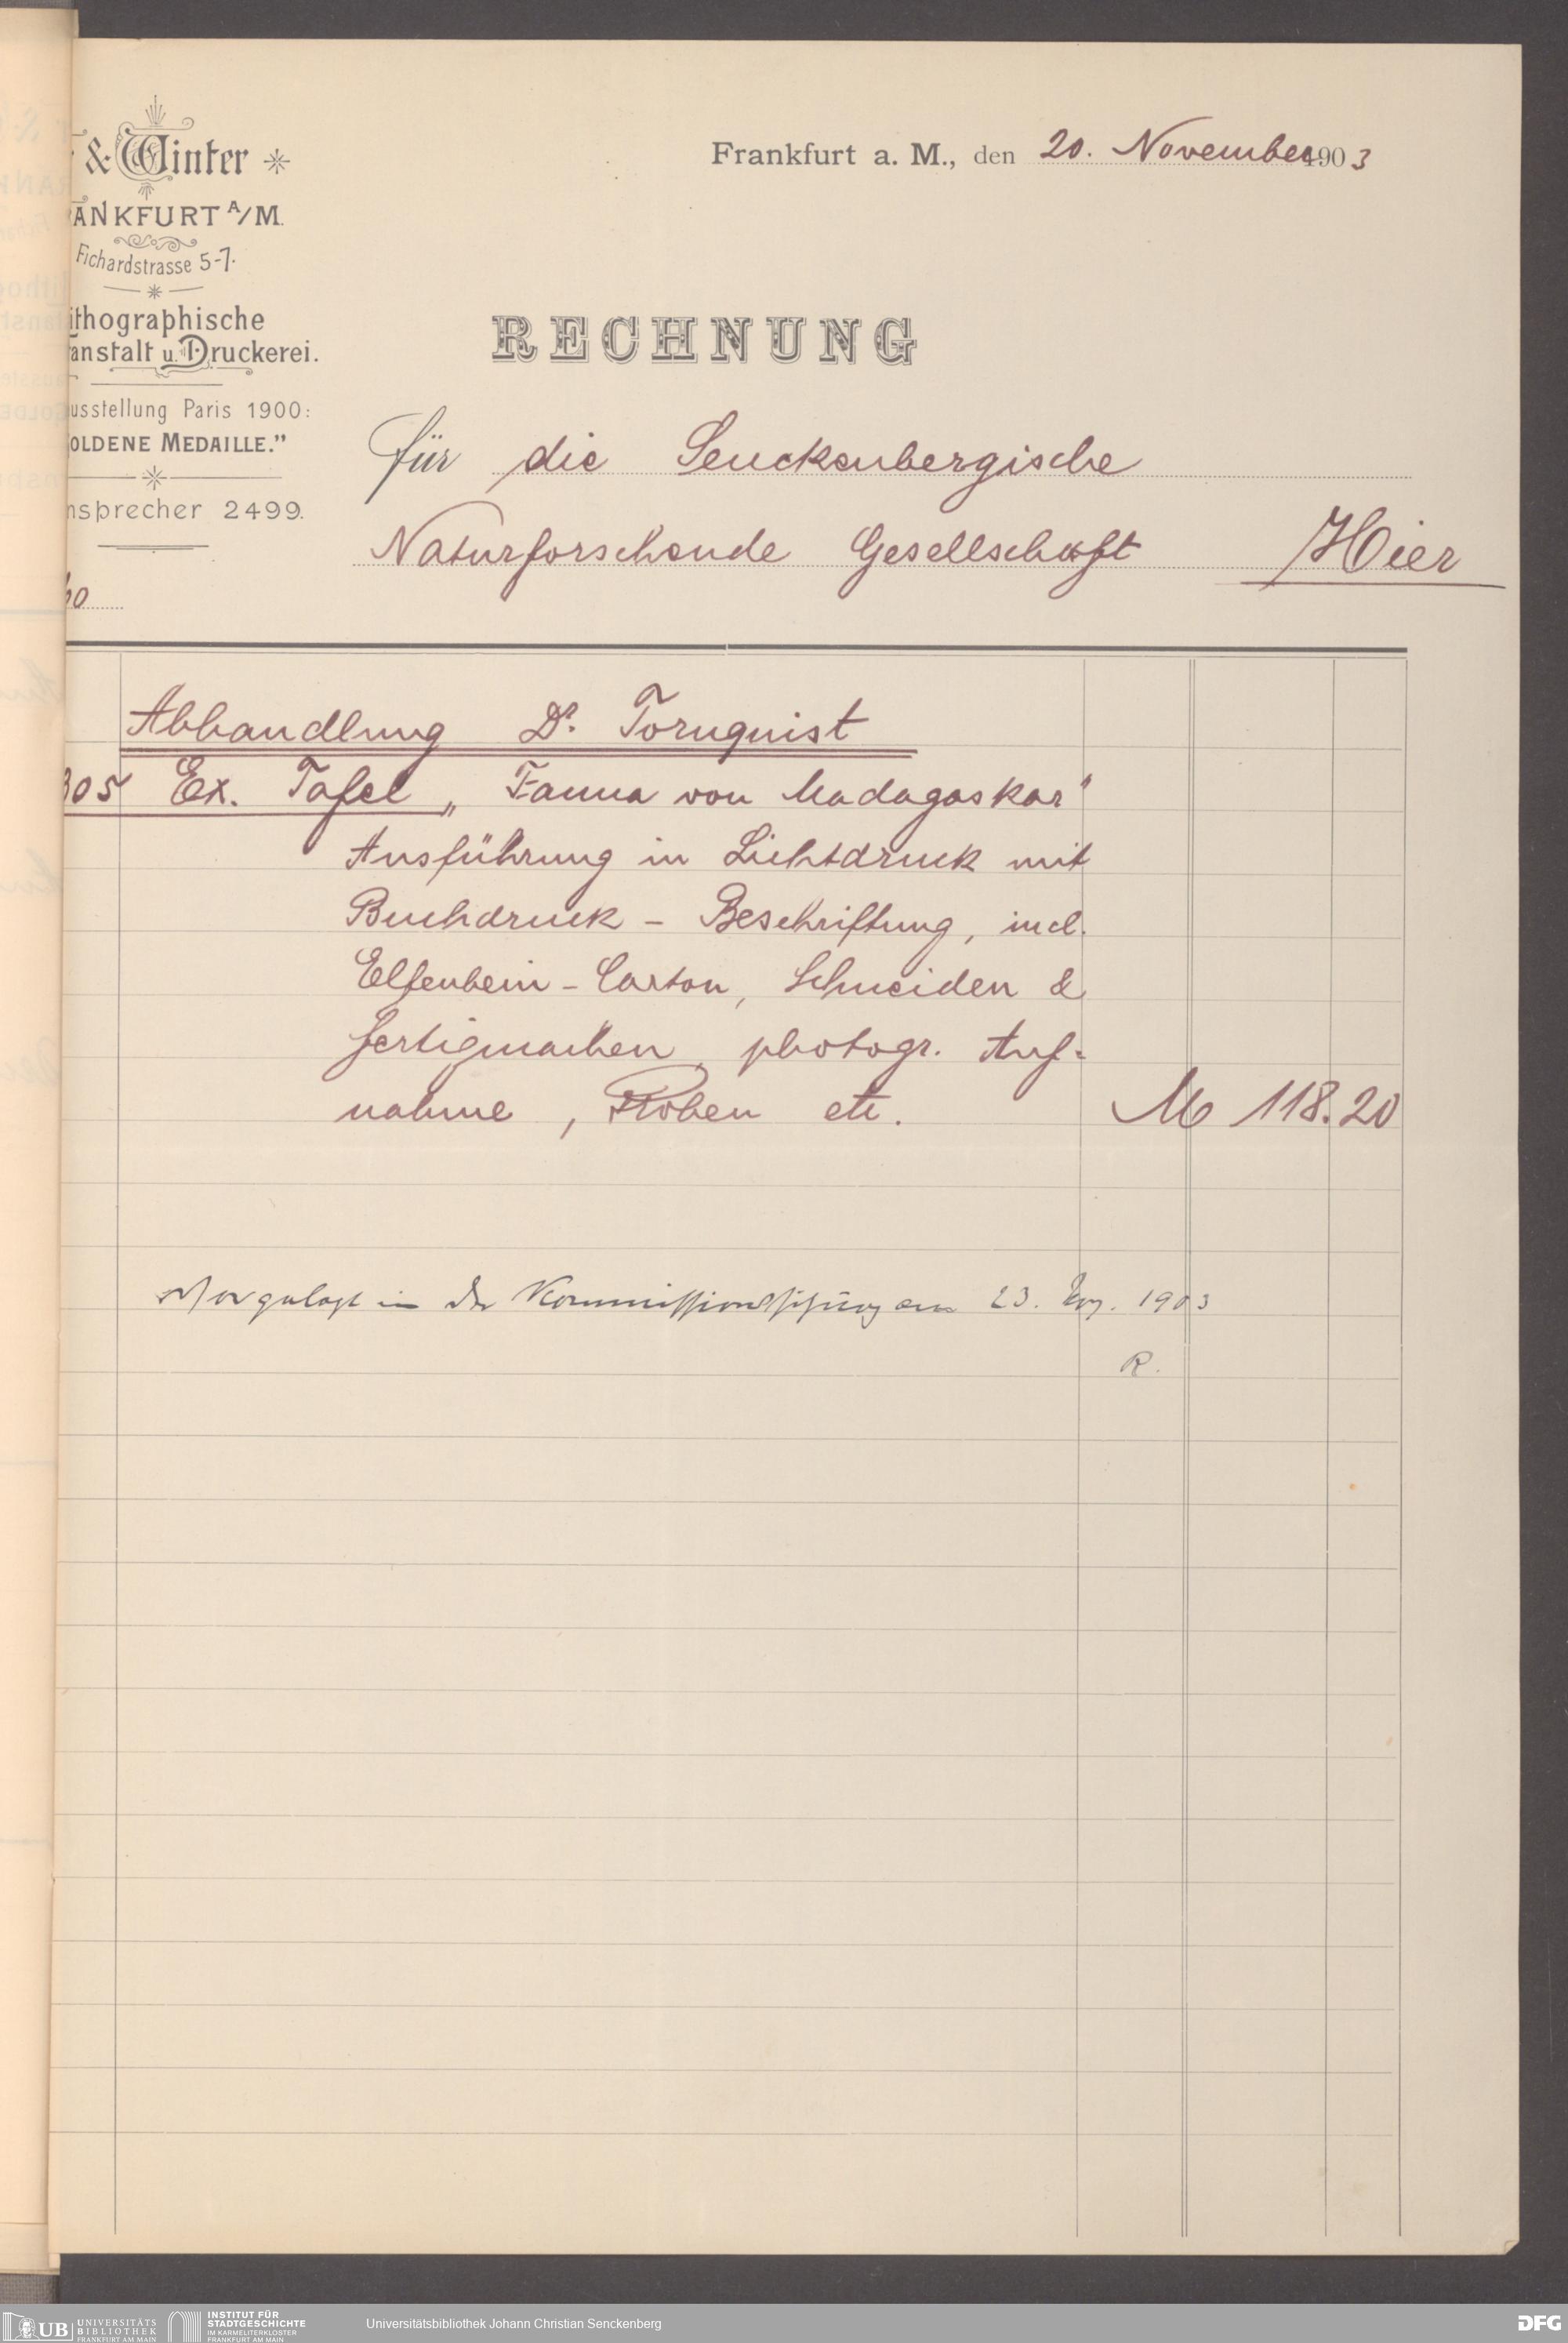 & Winter
ANKFURT A/M.
Fichardstrasse 5-7.
ithographische
anstalt u. Druckerei.
usstellung Paris 1900:
OLDENE MEDAILLE."
nsprecher 2499.
Frankfurt a. M., den 20. November 1903
RECHNUNG
für die Senckenbergische
Naturforschende Gesellschaft Hier
Abhandlung Dr. Tornquist
305 Ex. Tafel „Fauna von Madagaskar"
Ausführung in Lichtdruck mit
Buchdruck - Beschriftung, incl.
Elfenbein - Carton, Schneiden &
fertigmachen, photogr. Auf-
nahme, Proben etc. M 118.20
Vorgelegt in der Kommissionssitzung am 23. Nov. 1903
R.
UB UNIVERSITÄTS
BIBLIOTHEK
FRANKFURT AM MAIN
INSTITUT FÜR
STADTGESCHICHTE
IM KARMELITERKLOSTER
FRANKFURT AM MAIN
Universitätsbibliothek Johann Christian Senckenberg
DFG